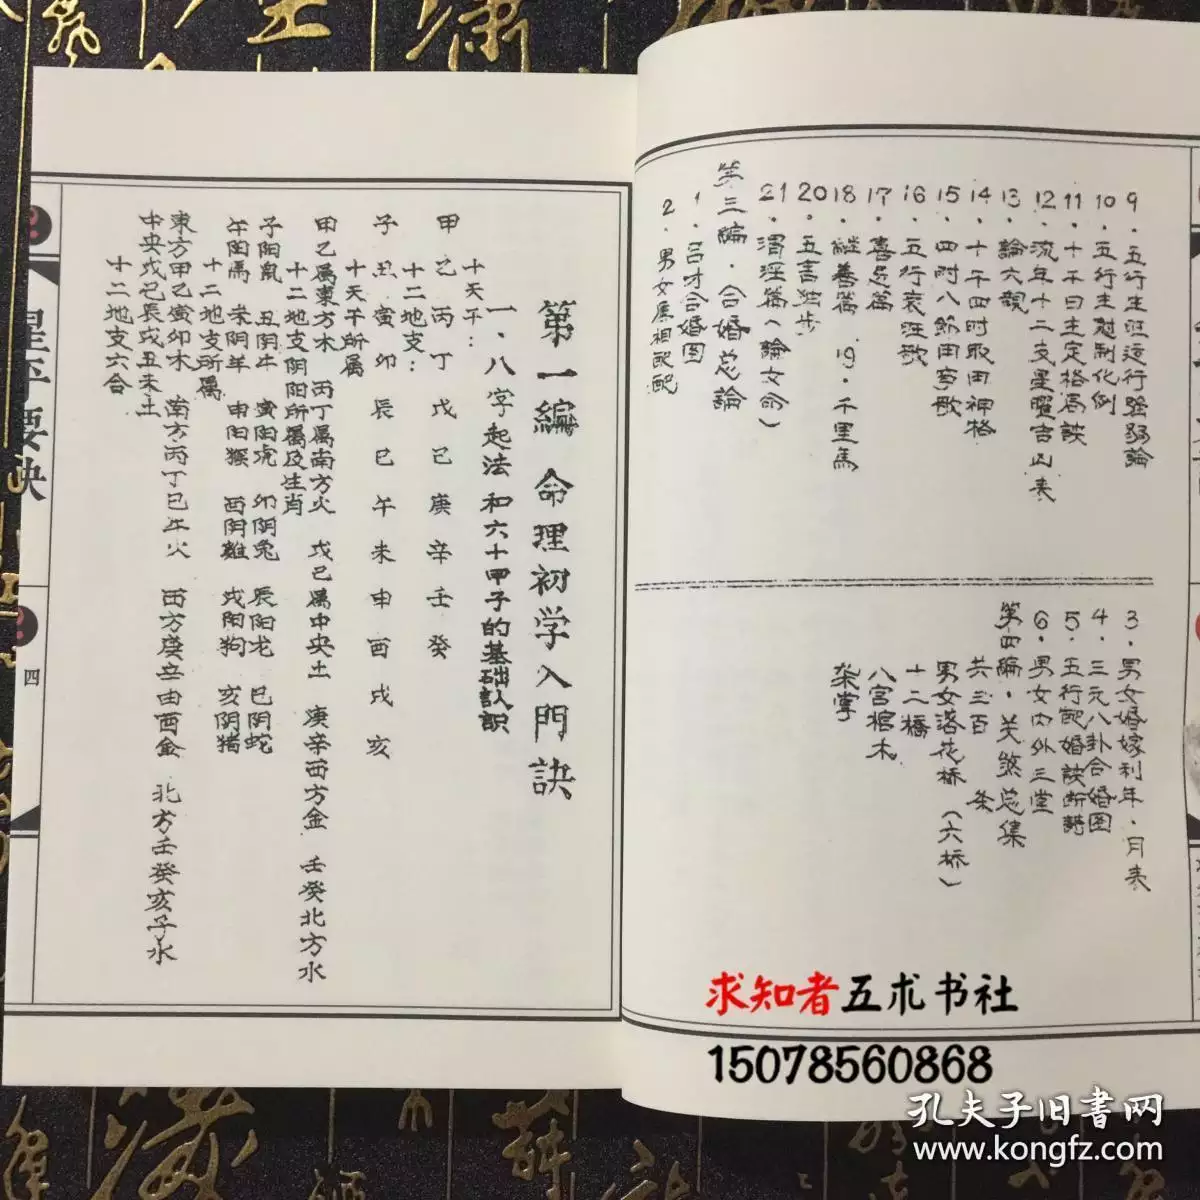 9．五行生旺运行强弱論
10．五行生尅制化例
11．十天日主定格局訣
12．流年十二支星曜吉凶表
13．論六親
14．十干四时取用神格
15．四时八節田亨歌
16．五行衰旺歌
17．喜忌篇
18．継善篇 19．千里馬
20．五言独步
21．渭泾篇（論女命）
第三編．合婚总論
1．吕才合婚图
2．男女属相配配
3．男女婚嫁利年．月表
4．三元八卦合婚图
5．五行配婚訣断語
6．男女内外三堂
第四編．关煞总集
共三百 条
男女落花桥（六桥）
十二橋
八宫棺木
柴掌
第一編 命理初学入門訣
一．八字起法和六十甲子的基础认識
十天干：
甲乙丙丁戊己庚辛壬癸
十二地支：
子丑寅卯辰巳午未申酉戌亥
十天干所属
甲乙属東方木 丙丁属南方火 戊己属中央土 庚辛西方金 壬癸北方水
十二地支阴阳所属及生肖
子阳鼠 丑阴牛 寅阳虎 卯阴兔 辰阳龙 巳阴蛇
午阳馬 未阴羊 申阳猴 酉阴雞 戌阳狗 亥阴猪
十二地支所属
東方甲乙寅卯木 南方丙丁巳午火 西方庚辛申酉金 北方壬癸亥子水
中央戊己辰戌丑未土
十二地支六合
星平要訣
四
求知者五术书社
15078560868
孔夫子旧書网
www.kongfz.com